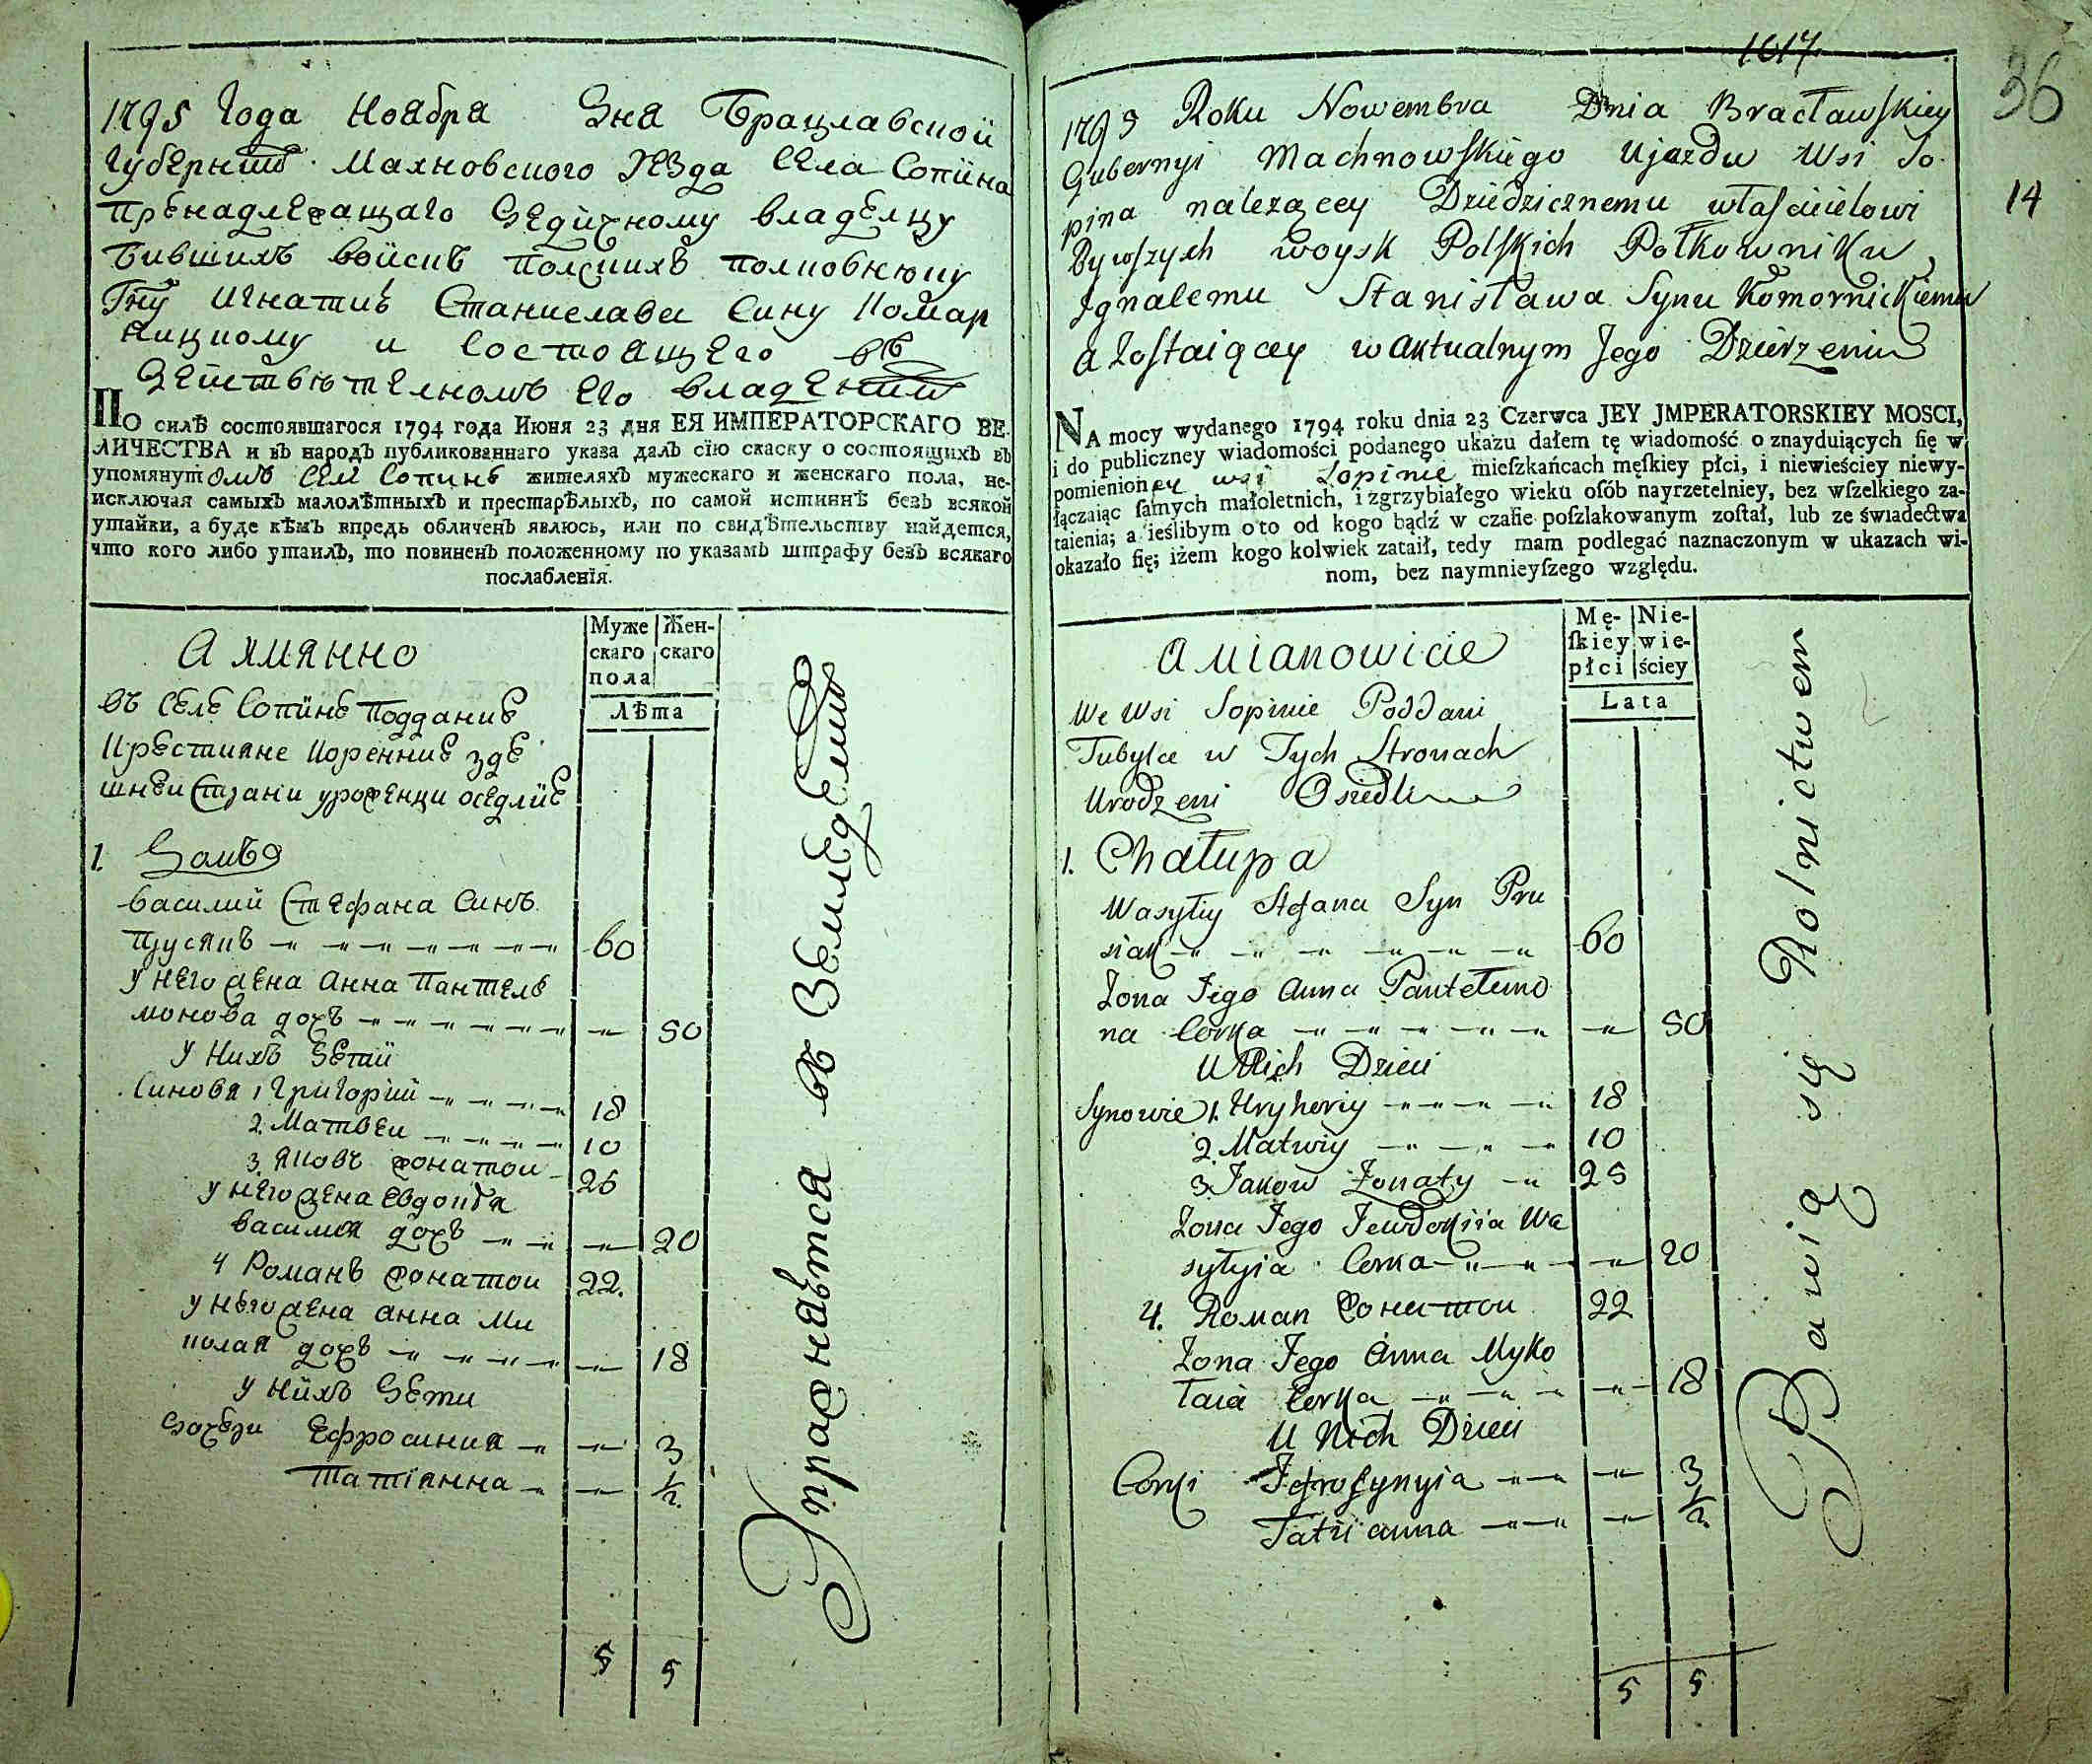 1795 Года Ноября Дня Брацлавской
Губернии Махновского Уезда Села Сопина
Пренадлежащаго Дедичному владелцу
Бившихъ войскъ Полскихъ Полковнюку
Гну Игнатию Станислава Сину Комар
ницкому и Состоящего въ
Действютелномъ Его владении
ПО силѣ состоявшагося 1794 года Июня 23 дня ЕЯ ИМПЕРАТОРСКАГО ВЕ-
ЛИЧЕСТВА и въ народъ публикованнаго указа далъ сїю скаску о состоящихъ въ
упомянутомъ селѣ Сопинѣ жителяхъ мужескаго и женскаго пола, не-
исключая самыхъ малолѣтныхъ и престарѣлыхъ, по самой истиннѣ безъ всякой
утайки, а буде кѣмъ впредь обличенъ явлюсь, или по свидѣтельству найдется,
что кого либо утаилъ, то повиненъ положенному по указамъ штрафу безъ всякаго
послабленїя.
А имянно
Муже
скаго
пола
Жен-
скаго
Лѣта
въ Селе Сопине Поддание
Крестияне Коренние зде
шнеи Страни уроженци оседлие
1. Домъ
василий Стефана Синъ
Прусякъ 60
у него жена Анна Пантеле
монова дочъ 50
у Нихъ Детий
Синовя 1 Григорий 18
2. Матвеи 10
3. Яковъ жонатои 25
у него жена Евдокия
василия дочъ 20
4 Романъ жонатои 22.
у него жена анна Ми
колая дочъ 18
у нихъ Дети
Дочери Ефросиния 3
Татіянна 1/2
5 5
Упражняются въ Земледелии
1017
36
14
1795 Roku Nowembra Dnia Bracławskiey
Gubernyi Machnowskiego Ujazdu Wsi So-
pina nalezącey Dziedzicznemu właścicielowi
Bywszych woysk Polskich Połkowniku,
Ignatemu Stanisława Synu Komornickiemu
a Zostaiącey w aktualnym Jego Dzierzeniu
NA mocy wydanego 1794 roku dnia 23 Czerwca JEY JMPERATORSKIEY MOSCI,
i do publiczney wiadomości podanego ukazu dałem tę wiadomość o znayduiących ſię w
pomienioney wsi Sopinie mieſzkańcach męſkiey płci, i niewieściey niewy-
łączaiąc ſamych małoletnich, i zgrzybiałego wieku osób nayrzetelniey, bez wſzelkiego za-
taienia; a ieślibym o to od kogo bądź w czaſie poſzlakowanym zoſtał, lub ze świadectwa
okazało ſię; iżem kogo kolwiek zataił, tedy mam podlegać naznaczonym w ukazach wi-
nom, bez naymnieyſzego względu.
a mianowicie
Mę-
ſkiey
płci
Nie-
wie-
ściey
Lata
We Wsi Sopinie Poddani
Tubylce w Tych Stronach
Urodzeni Osiedli
1. Chałupa
Wasyliy Stefana Syn Pru
siak 60
Zona Jego Anna Pantelimo
na Corka 50
U Nich Dzieci
Synowie 1. Hryhoriy 18
2. Matwiy 10
3. Jakow Zonaty 25
Zona Jego Jewdokiia Wa
sylyia Corka 20
4. Roman жонатои 22
Zona Jego Anna Myko
łaia Corka 18
U Nich Dzieci
Corki Jefrosynyia 3
Tatiianna 1/2
5 5
Bawią się Rolnictwem